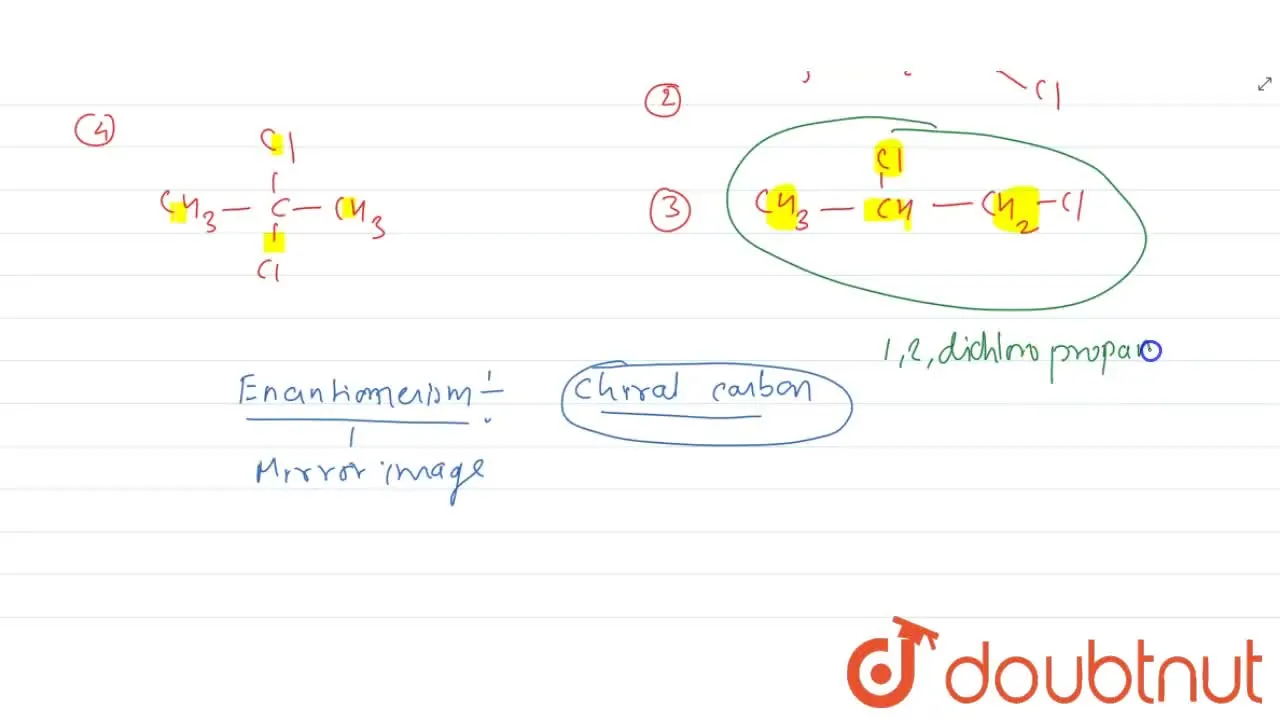 ② Cl
④
Cl
CH3 — C — CH3
Cl
Cl
③ CH3 — CH — CH2 — Cl
1,2, dichloro propan
Enantiomerism :- Chiral carbon
Mirror image
doubtnut